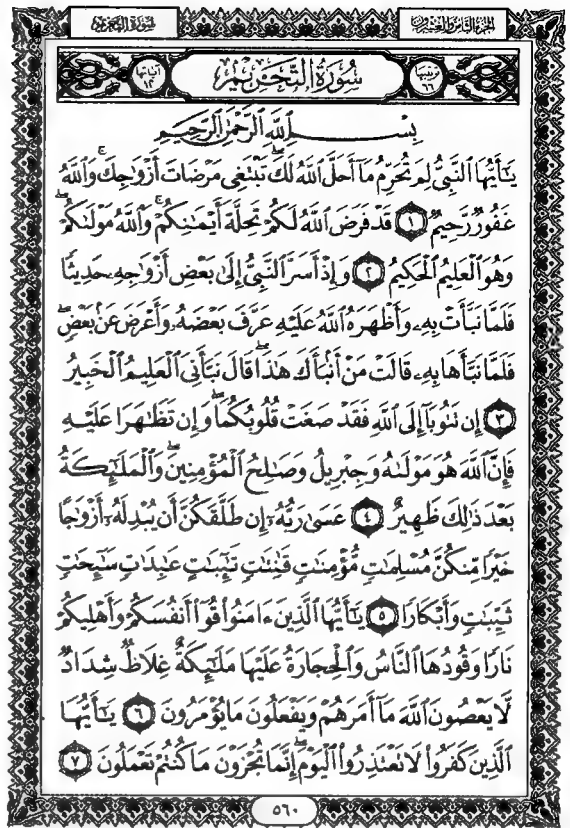 الجزء الثامن والعشرون
سورة التحريم
ترتيبها ٦٦
سُورَةُ التَّحْرِيمِ
آياتها ١٢
بِسْمِ ٱللَّهِ ٱلرَّحْمَٰنِ ٱلرَّحِيمِ
يَٰٓأَيُّهَا ٱلنَّبِىُّ لِمَ تُحَرِّمُ مَآ أَحَلَّ ٱللَّهُ لَكَ ۖ تَبْتَغِى مَرْضَاتَ أَزْوَٰجِكَ ۚ وَٱللَّهُ
غَفُورٌ رَّحِيمٌ ١ قَدْ فَرَضَ ٱللَّهُ لَكُمْ تَحِلَّةَ أَيْمَٰنِكُمْ ۚ وَٱللَّهُ مَوْلَىٰكُمْ ۖ
وَهُوَ ٱلْعَلِيمُ ٱلْحَكِيمُ ٢ وَإِذْ أَسَرَّ ٱلنَّبِىُّ إِلَىٰ بَعْضِ أَزْوَٰجِهِۦ حَدِيثًا
فَلَمَّا نَبَّأَتْ بِهِۦ وَأَظْهَرَهُ ٱللَّهُ عَلَيْهِ عَرَّفَ بَعْضَهُۥ وَأَعْرَضَ عَنۢ بَعْضٍ ۖ
فَلَمَّا نَبَّأَهَا بِهِۦ قَالَتْ مَنْ أَنۢبَأَكَ هَٰذَا ۖ قَالَ نَبَّأَنِىَ ٱلْعَلِيمُ ٱلْخَبِيرُ
٣ إِن تَتُوبَآ إِلَى ٱللَّهِ فَقَدْ صَغَتْ قُلُوبُكُمَا ۖ وَإِن تَظَٰهَرَا عَلَيْهِ
فَإِنَّ ٱللَّهَ هُوَ مَوْلَىٰهُ وَجِبْرِيلُ وَصَٰلِحُ ٱلْمُؤْمِنِينَ ۖ وَٱلْمَلَٰٓئِكَةُ
بَعْدَ ذَٰلِكَ ظَهِيرٌ ٤ عَسَىٰ رَبُّهُۥٓ إِن طَلَّقَكُنَّ أَن يُبْدِلَهُۥٓ أَزْوَٰجًا
خَيْرًا مِّنكُنَّ مُسْلِمَٰتٍ مُّؤْمِنَٰتٍ قَٰنِتَٰتٍ تَٰٓئِبَٰتٍ عَٰبِدَٰتٍ سَٰٓئِحَٰتٍ
ثَيِّبَٰتٍ وَأَبْكَارًا ٥ يَٰٓأَيُّهَا ٱلَّذِينَ ءَامَنُوا۟ قُوٓا۟ أَنفُسَكُمْ وَأَهْلِيكُمْ
نَارًا وَقُودُهَا ٱلنَّاسُ وَٱلْحِجَارَةُ عَلَيْهَا مَلَٰٓئِكَةٌ غِلَاظٌ شِدَادٌ
لَّا يَعْصُونَ ٱللَّهَ مَآ أَمَرَهُمْ وَيَفْعَلُونَ مَا يُؤْمَرُونَ ٦ يَٰٓأَيُّهَا
ٱلَّذِينَ كَفَرُوا۟ لَا تَعْتَذِرُوا۟ ٱلْيَوْمَ ۖ إِنَّمَا تُجْزَوْنَ مَا كُنتُمْ تَعْمَلُونَ ٧
٥٦٠